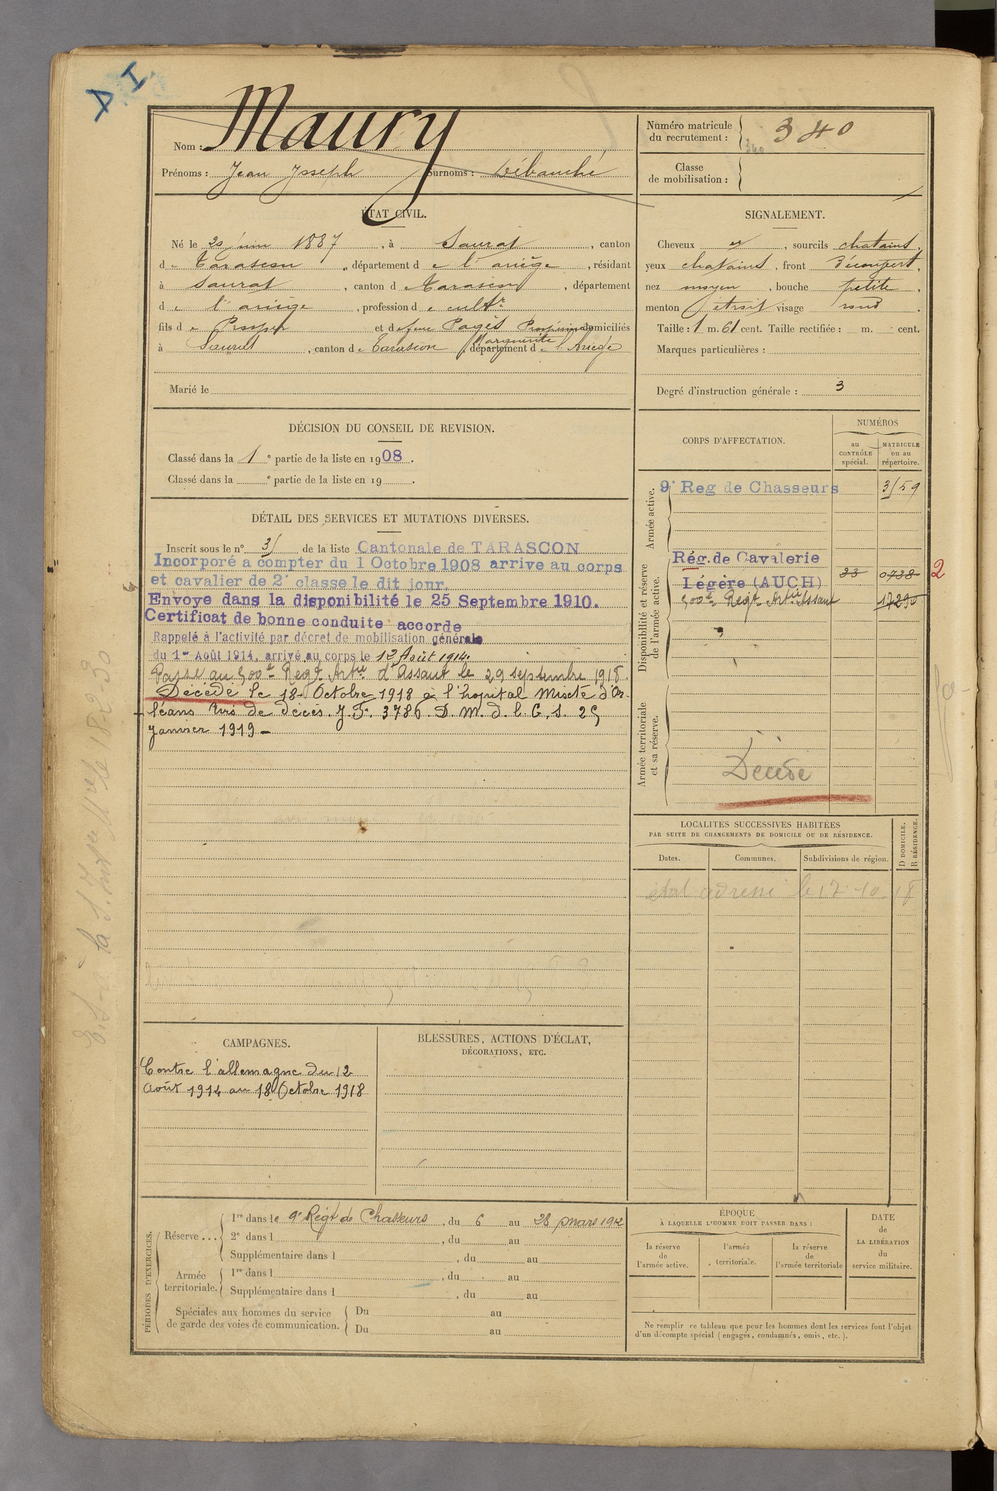 D I
Nom : Maury
Prénoms : Jean Joseph Surnoms : Débauché
Numéro matricule du recrutement : 340
340
Classe de mobilisation :
ÉTAT CIVIL.
Né le 20 juin 1887, à Saurat, canton
de Tarascon, département de l'ariège, résidant
à Saurat, canton d Tarascon, département
de l'ariège, profession de cultr
fils de Prosper et de feue Pagès domiciliés
Marguerite
à Saurat, canton de Tarascon, département de l'Ariège
Marié le
SIGNALEMENT.
Cheveux et, sourcils chatains,
yeux chatains, front découvert,
nez moyen, bouche petite,
menton étroit visage rond.
Taille : 1 m. 61 cent. Taille rectifiée : m. cent.
Marques particulières :
Degré d'instruction générale : 3
DÉCISION DU CONSEIL DE REVISION.
Classé dans la 1e partie de la liste en 1908.
Classé dans la e partie de la liste en 19 .
DÉTAIL DES SERVICES ET MUTATIONS DIVERSES.
Inscrit sous le n° 31 de la liste Cantonale de TARASCON
Incorporé a compter du 1 Octobre 1908 arrive au corps
et cavalier de 2e classe le dit jour.
Envoye dans la disponibilité le 25 Septembre 1910.
Certificat de bonne conduite accorde
Rappelé à l'activité par décret de mobilisation générale
du 1er Août 1914, arrivé au corps le 12 Août 1914.
Passé au 500e Regt Artie d'Assaut le 29 septembre 1918.
Décédé le 18 Octobre 1918 à l'hopital Mixte d'Or
léans Avis de décès. J.F. 3786. D. M. d. l. G. S. 25
janvier 1919 -
CORPS D'AFFECTATION.
NUMÉROS
au CONTRÔLE spécial.
MATRICULE ou au répertoire.
Armée active.
9e Reg de Chasseurs 3159
Disponibilité et réserve de l'armée active.
Rég. de Cavalerie
Légère (AUCH) 33 0738 2
500e Regt Artie Assaut 17290
Armée territoriale et sa réserve.
Décédé
LOCALITÉS SUCCESSIVES HABITÉES
PAR SUITE DE CHANGEMENTS DE DOMICILE OU DE RÉSIDENCE.
Dates. Communes. Subdivisions de région. D DOMICILE. R RÉSIDENCE.
le 17-10-18
CAMPAGNES.
Contre l'allemagne du 12
Août 1914 au 18 Octobre 1918
BLESSURES, ACTIONS D'ÉCLAT,
DÉCORATIONS, ETC.
PÉRIODES D'EXERCICES.
Réserve ...
1re dans le 9e Régt de Chasseurs, du 6 au 28 mars 1912
2e dans l , du au
Supplémentaire dans l , du au
Armée territoriale.
1re dans l , du au
Supplémentaire dans l , du au
Spéciales aux hommes du service
de garde des voies de communication.
Du au
Du au
ÉPOQUE
À LAQUELLE L'HOMME DOIT PASSER DANS :
la réserve de l'armée active.
l'armée territoriale.
la réserve de l'armée territoriale
DATE de LA LIBÉRATION du service militaire.
Ne remplir ce tableau que pour les hommes dont les services font l'objet
d'un décompte spécial (engagés, condamnés, omis, etc.).